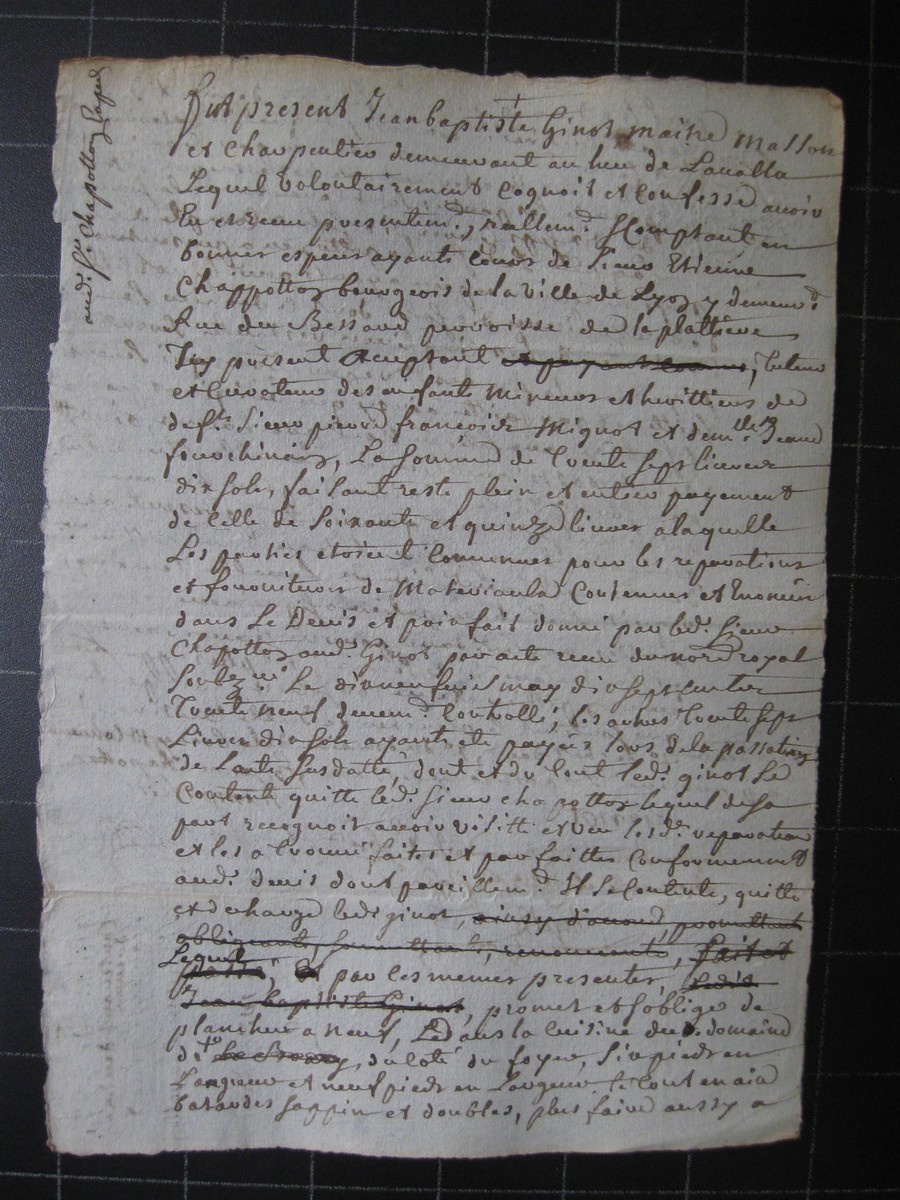 aud. Sr. Chapottoz
fut present Jean baptiste Ginot maitre masson
et charpentier demeurant au lieu de Lavalla
Lequel volontairement Cognoit et Confesse avoir
Eu et receu presentem.t, reallem.t & Comptant en
bonnes espesses ayants Cours de Sieur Etienne
Chappottoz bourgeois de la ville de Lyoz y demeur.t
Rue du Bessard parroisse de la plattiere
Icy present Acceptant et payant comme, Tuteur
et Curateur des enfants Mineurs et herittiers de
deft. Sieur pierre françois Mignot et dem.lle Jeanne
, La Somme de Trente Sept livres
dix sols, faisant reste plein et entier payement
de Celle de Soixante et quinze livres a laquelle
Les parties etoient Convenues pour les reparations
et fournitures de Materiaula Contenues et Enoncés
dans Le Devis et prixfait donné par led. Sieur
Chapottoz aud. Ginot par acte receu du nore. royal
soubz.né Le dix neufvis may dix sept cents
trente neuf deuem.t Controllé, les autres Trente sept
Livres dix sols ayants eté payés lors de la passation
de Lacte Susdatté, dont et du tout led. ginot Se
Contente quitte led. Sieur Chapottoz lequel de sa
part recognoit avoir visitté et veu lesd. reparations
et les a trouvé faites et parfaittes Conformement
aud. devis dont pareillem.t Il Se Contente, quitte
et decharge ledit ginot, ainsy d'accord, promettant
obligeants, soumettants, renonceants, fait et
Lequel
passé, Et par les memes presentes, Ledit
Jean baptiste Ginot, promet et s'oblige de
plancher a neuf, Led dans la Cuisine du d. domaine
de , du Coté du foyer, Six pieds en
Langueur et neuf pieds en Largeur le tout en aix
batardes sappin et doubles, plus faire aussy a